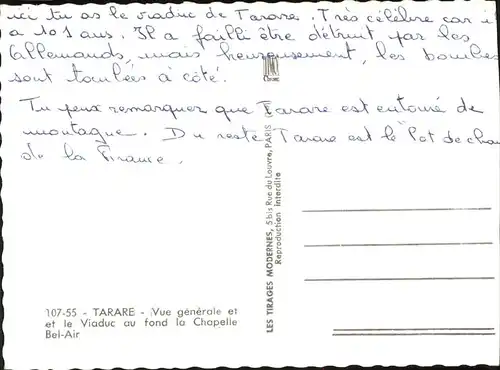 ici tu as le viaduc de Tarare. Très célèbre car i
a 101 ans. Il a failli être détruit par les
Allemands, mais heureusement, les bombes
sont tombées à côté.
Tu peux remarquer que Tarare est entouré de
montagne. Du reste Tarare est le "Pot de cham
de la France.
107-55 - TARARE - Vue générale et
et le Viaduc au fond la Chapelle
Bel-Air
LES TIRAGES MODERNES, 5 bis Rue du Louvre, PARIS
Reproduction interdite